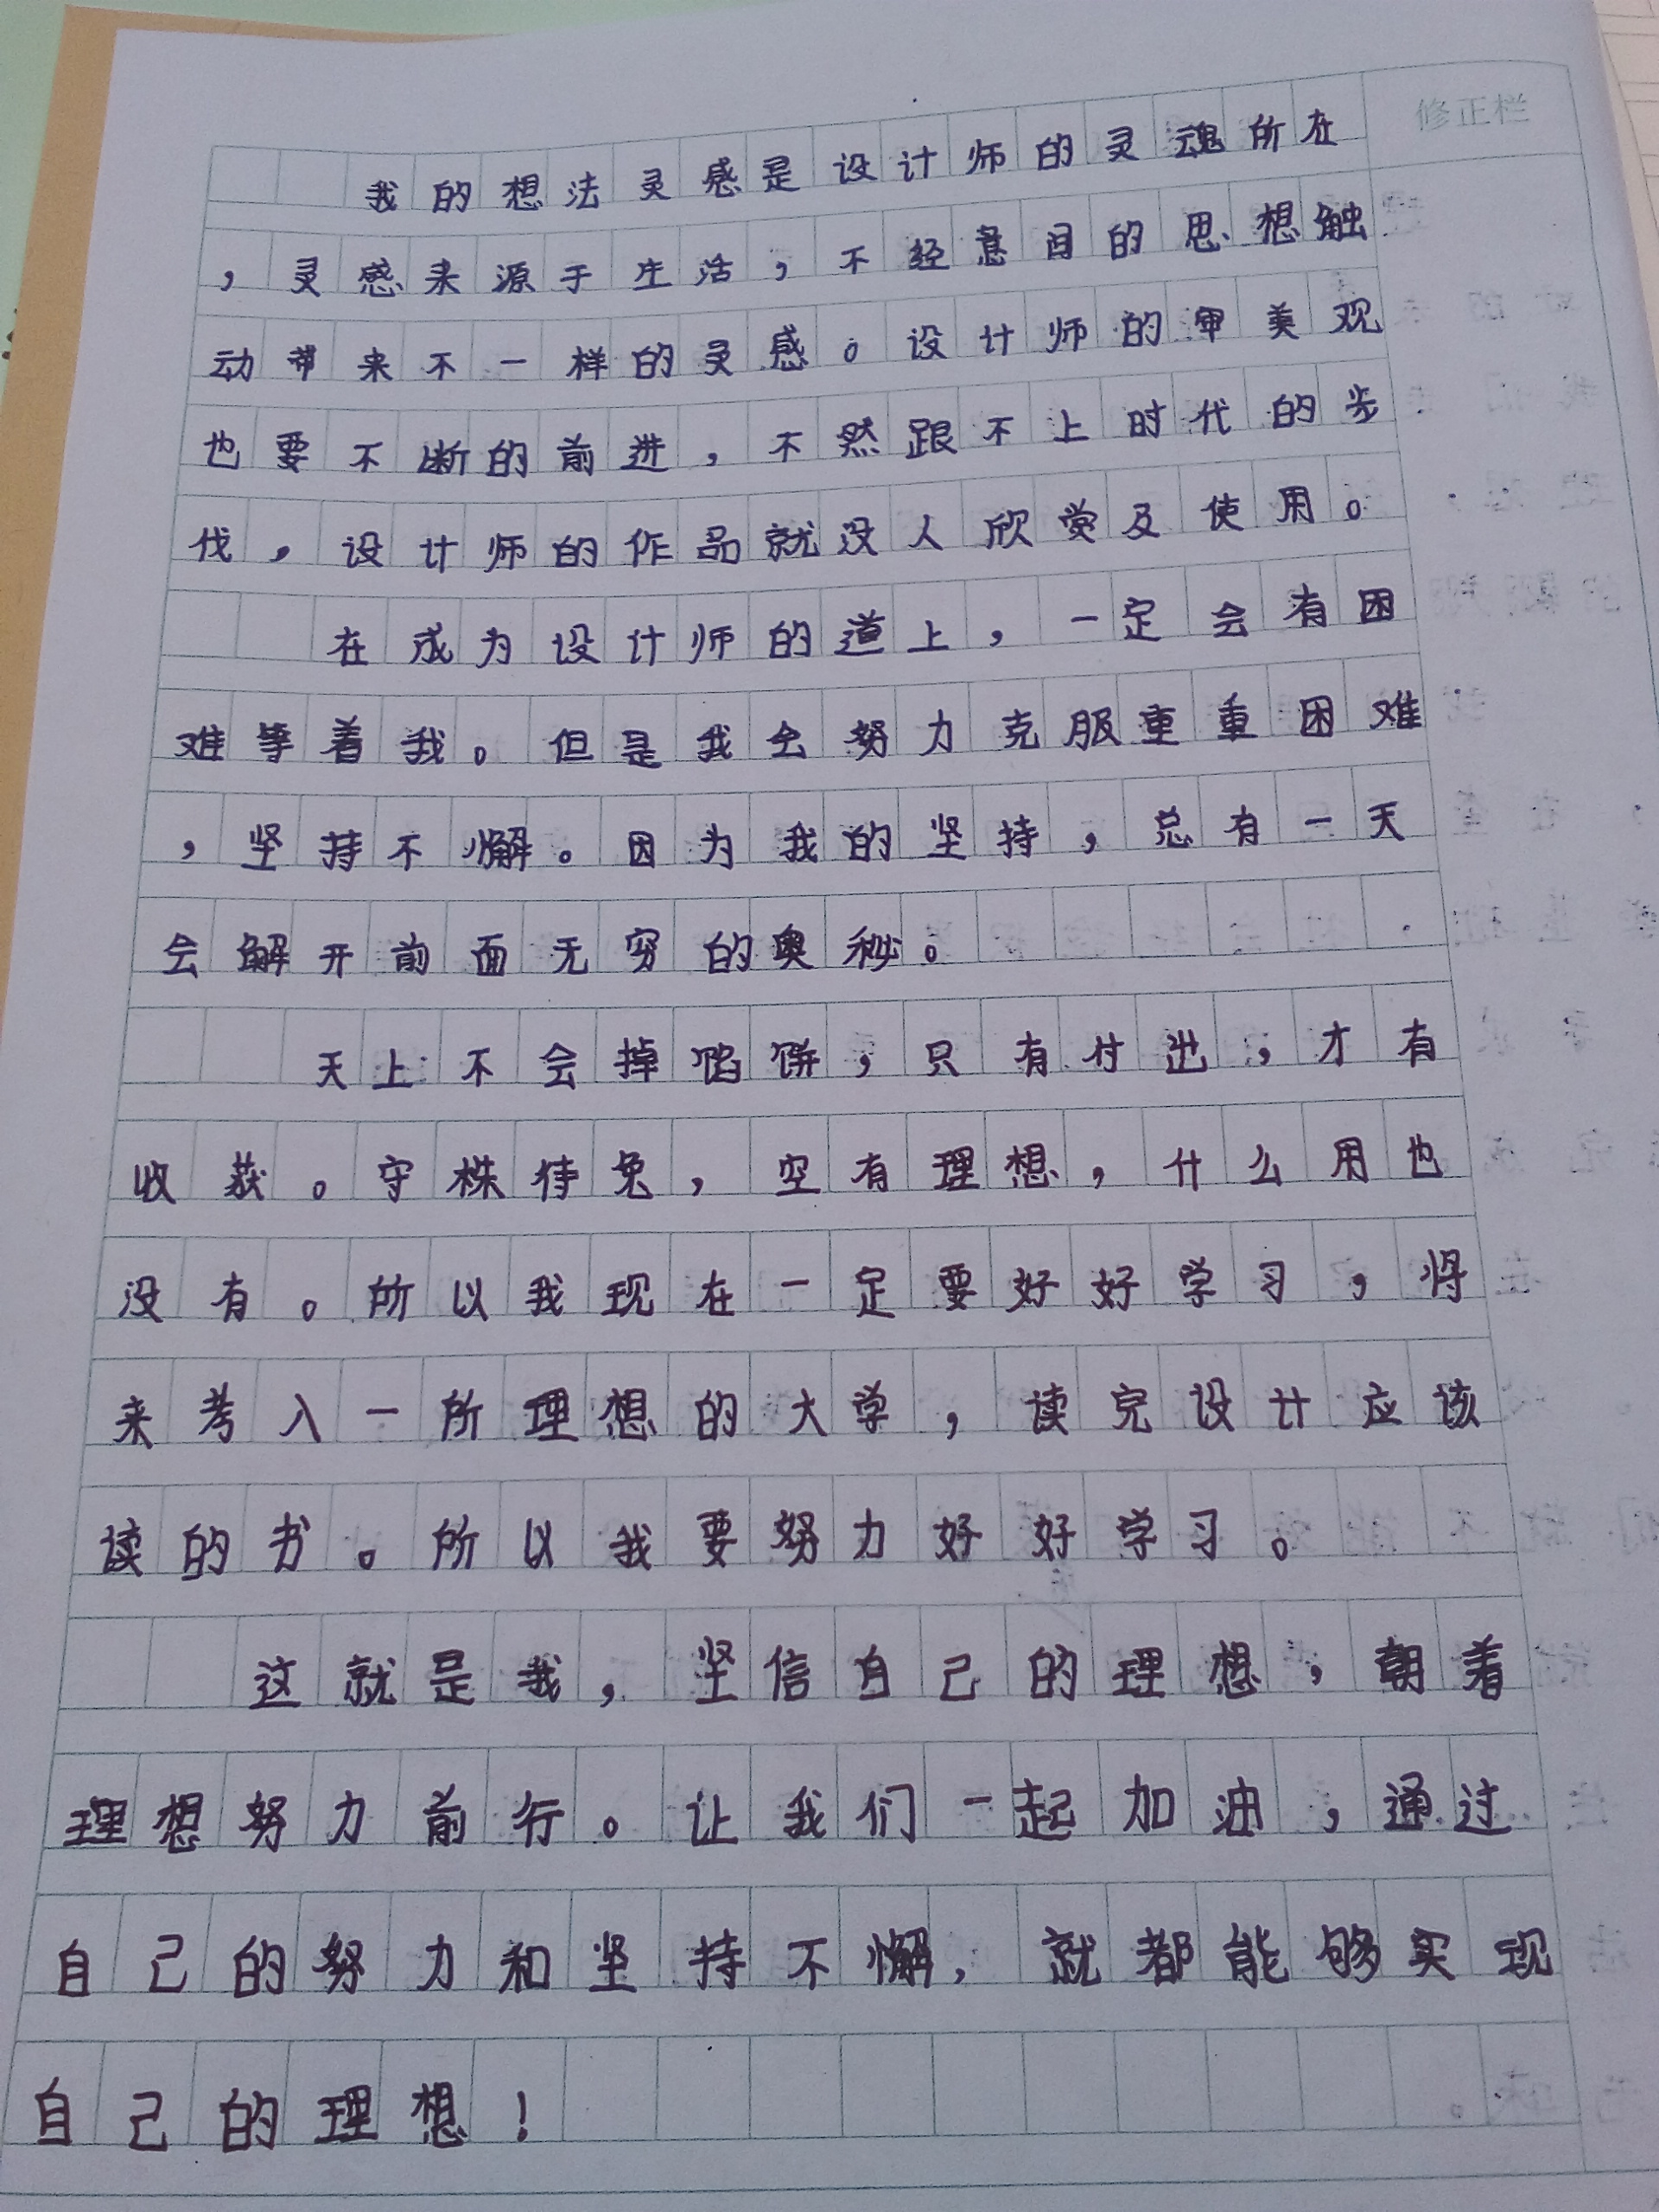 修正栏
我的想法灵感是设计师的灵魂所在
，灵感来源于生活，不经意自的思想触
动带来不一样的灵感。设计师的审美观
也要不断的前进，不然跟不上时代的步
伐，设计师的作品就没人欣赏及使用。
在成为设计师的道上，一定会有困
难等着我。但是我会努力克服重重困难
，坚持不懈。因为我的坚持，总有一天
会解开前面无穷的奥秘。
天上不会掉馅饼，只有付出，才有
收获。守株待兔，空有理想，什么用也
没有。所以我现在一定要好好学习，将
来考入一所理想的大学，读完设计应该
读的书。所以我要努力好好学习。
这就是我，坚信自己的理想，朝着
理想努力前行。让我们一起加油，通过
自己的努力和坚持不懈，就都能够实现
自己的理想！